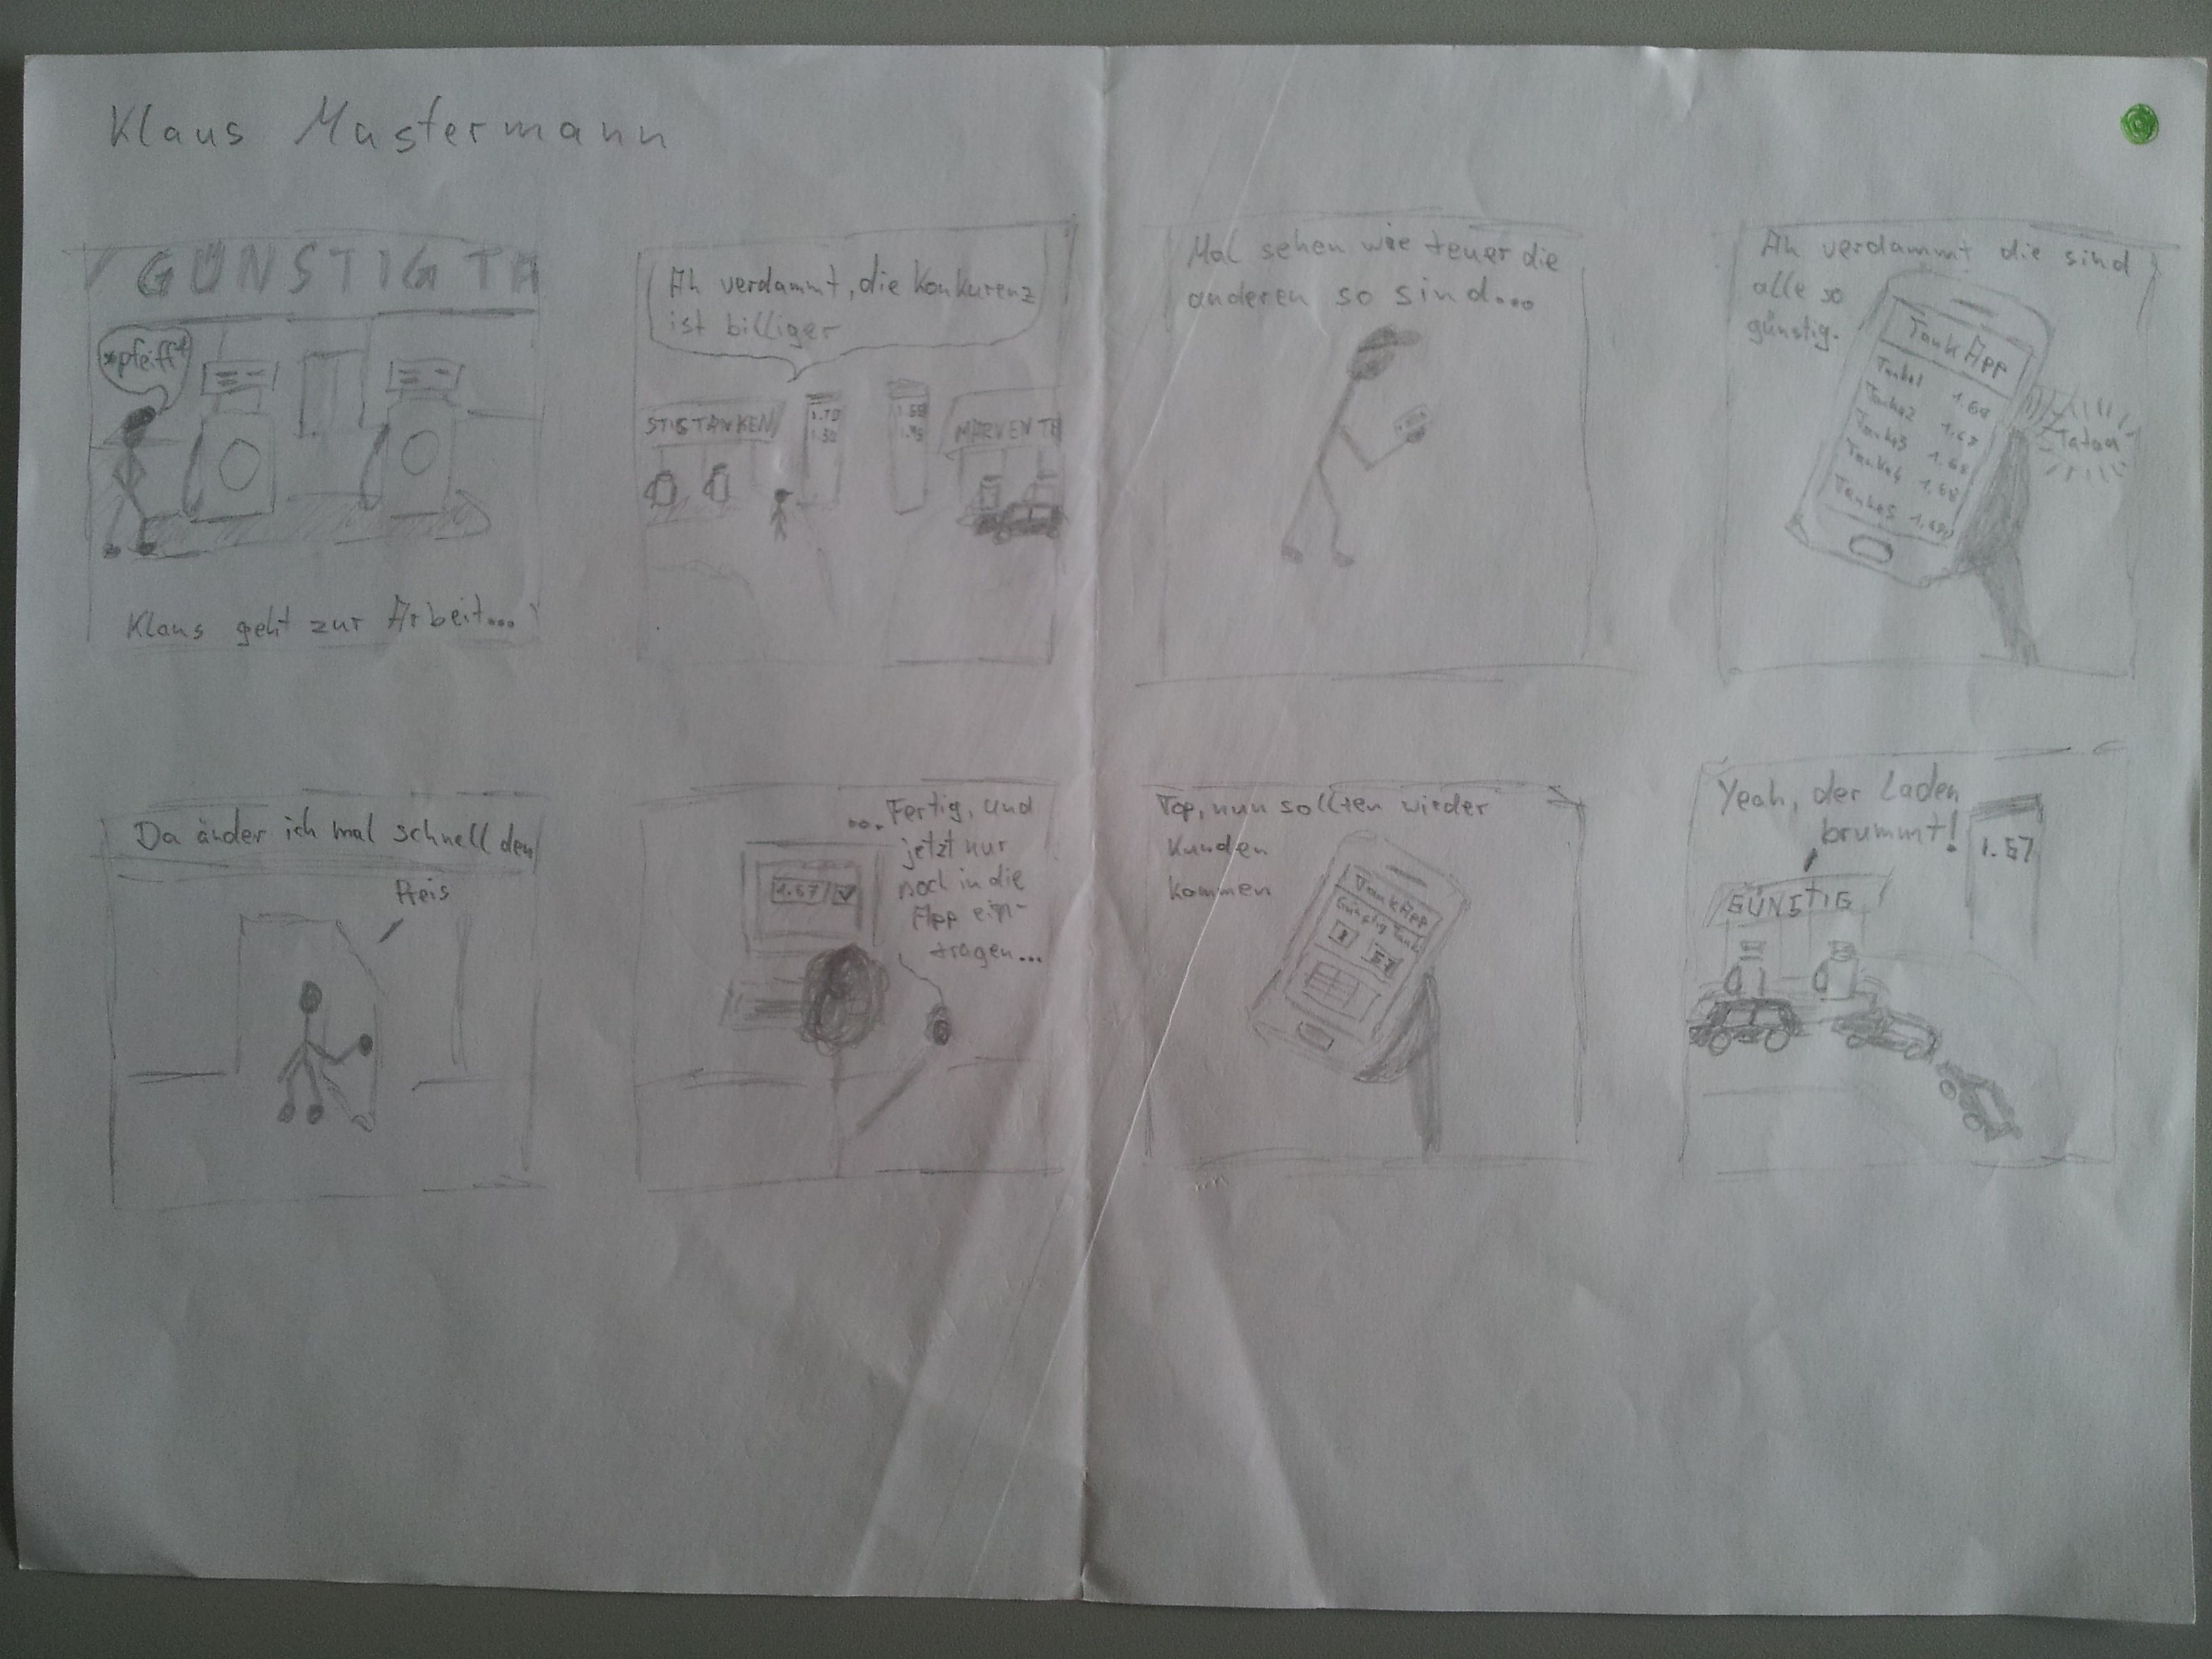 Klaus Mustermann
GÜNSTIG TA
*pfeiff*
Klaus geht zur Arbeit...
Ah verdammt, die Konkurenz
ist billiger
STIGTANKEN
MARKEN TA
Mal sehen wie teuer die
anderen so sind...
Ah verdammt die sind
alle so
günstig.
Tank App
Tanke1 1.68
Tanke2
Tanke3 1.68
Tanke4 1.68
Tanke5
Tataa
Da änder ich mal schnell den
Preis
...Fertig, und
jetzt nur
noch in die
App ein-
tragen...
1.67
Top, nun sollten wieder
Kunden
kommen
Tank App
Günstig Tank
Yeah, der Laden
brummt!
1.67
GÜNSTIG